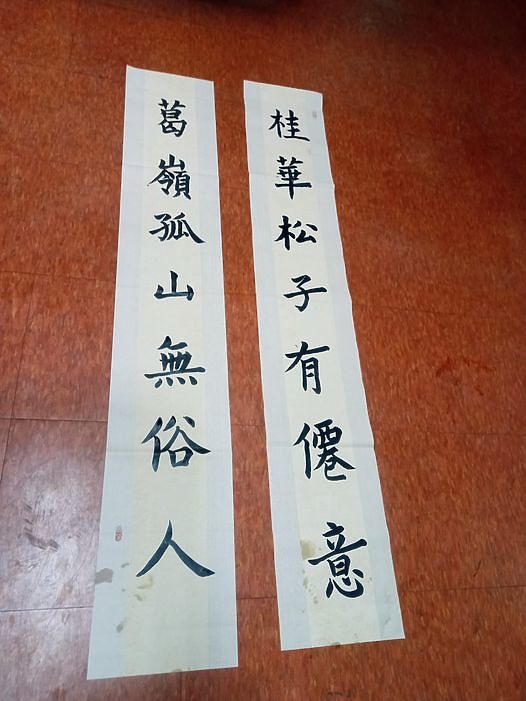 桂華松子有僊意
葛嶺孤山無俗人